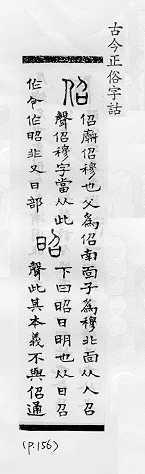 古今正俗字詁
佋
佋廟佋穆也父為佋南面子為穆北面从人召
聲佋穆字當从此
作今作昭非又日部
昭
下曰昭日明也从日召
聲此其本義不與佋通
(p.156)